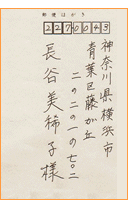 郵便はがき
2270043
神奈川県横浜市
青葉区藤が丘
二の二の一の七〇二
長谷美稀子様